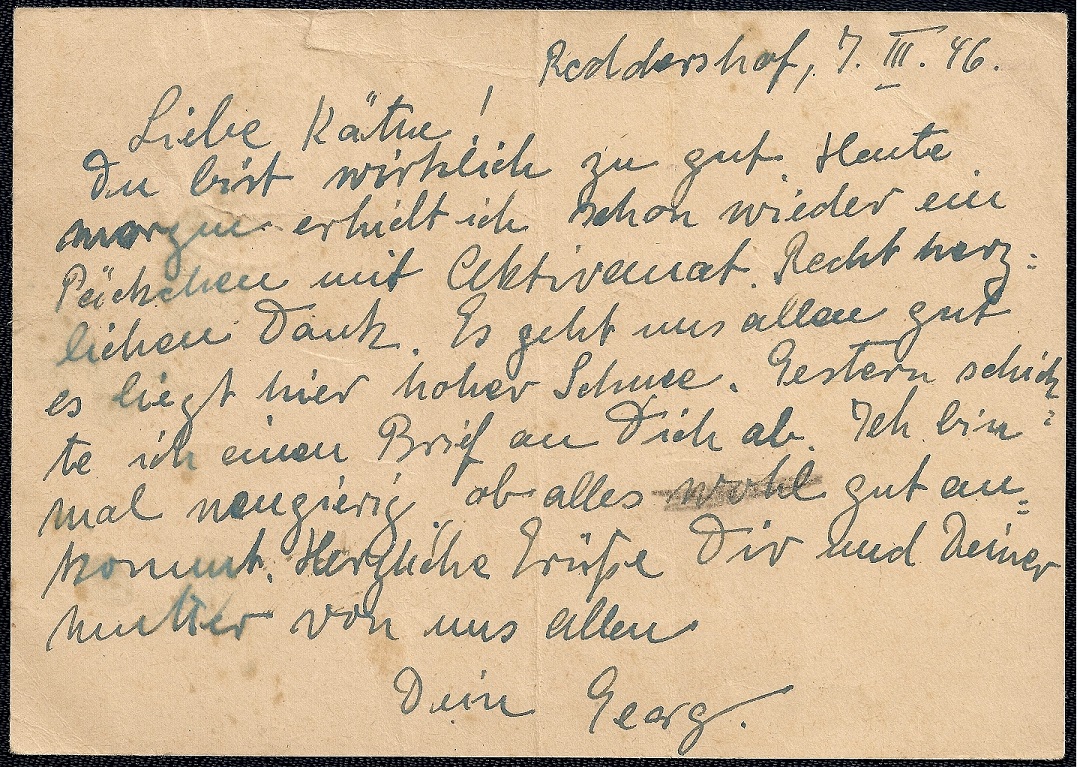 Reddershof, 7. III. 46.
Liebe Käthe!
Du bist wirklich zu gut. Heute
morgen erhielt ich schon wieder ein
Päckchen mit Aktivanat. Recht herz=
lichen Dank. Es geht uns allen gut
es liegt hier hoher Schnee. Gestern schick=
te ich einen Brief an Dich ab. Ich bin
mal neugierig, ob alles wohl gut an=
kommt. Herzliche Grüße Dir und Deiner
Mutter von uns allen
Dein Georg.